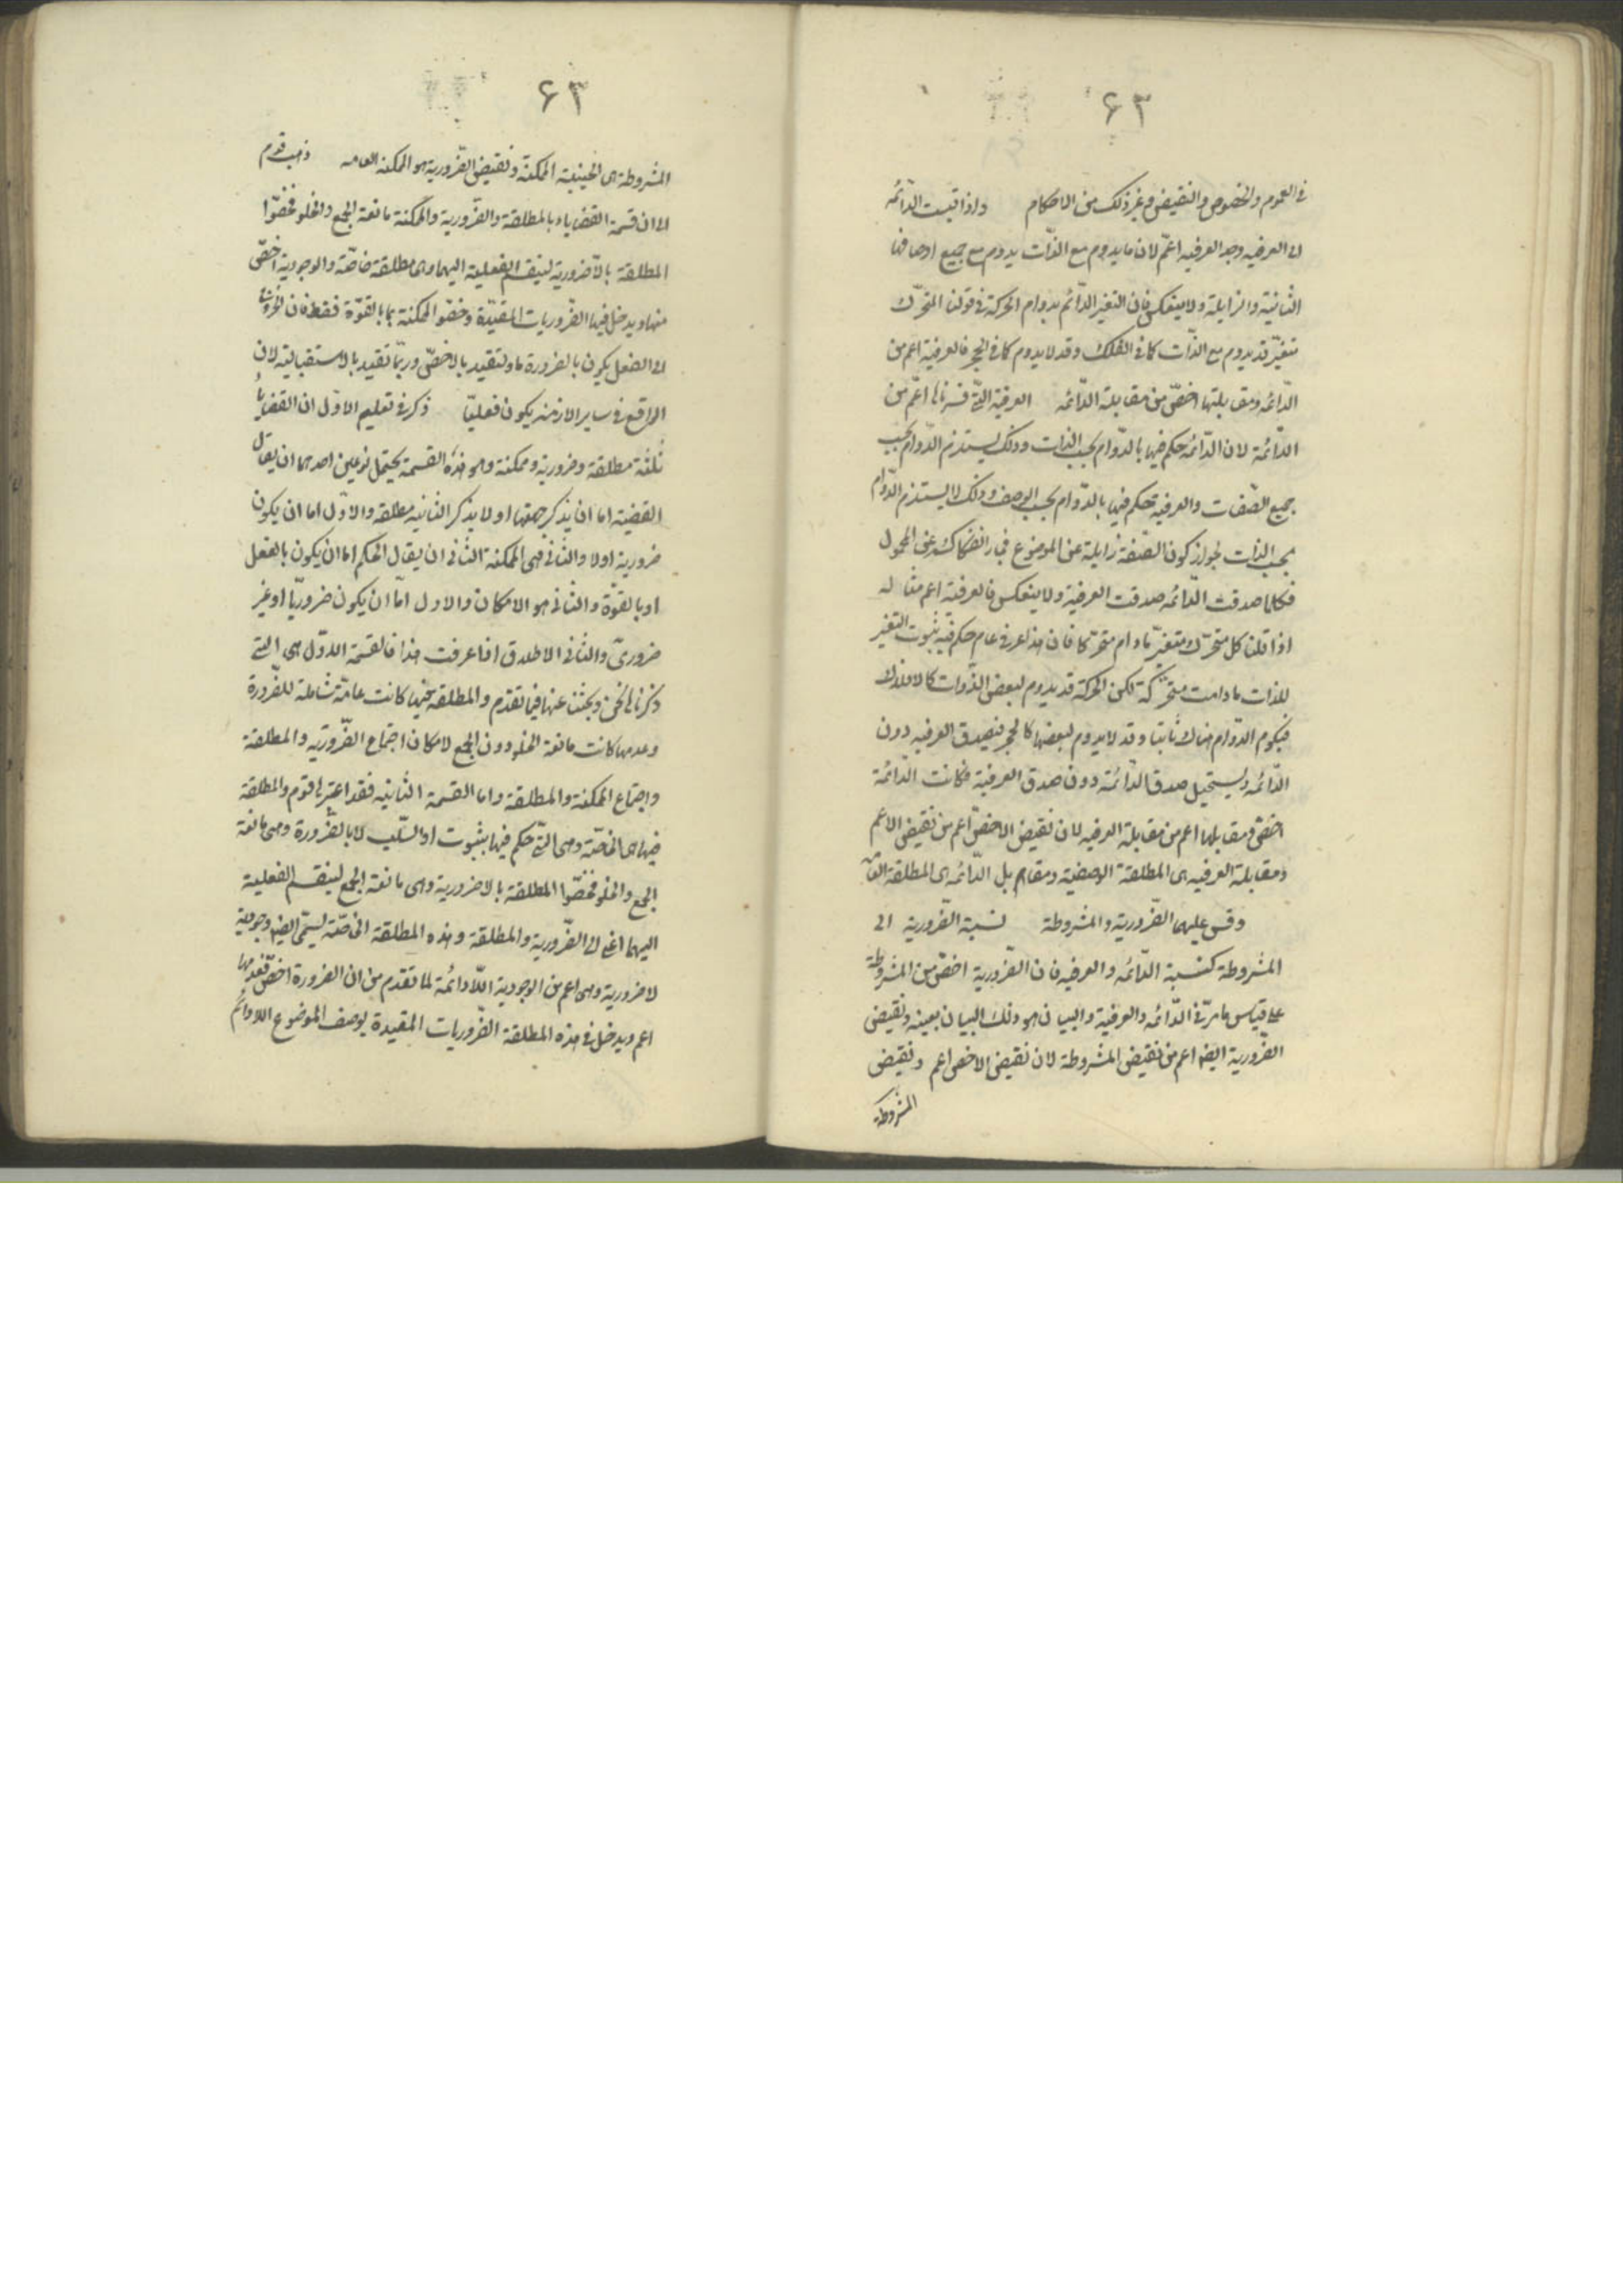 ٦٣
فى العموم والخصوص والنقيض وغير ذلك من الاحكام واذا قيست الدّائمه
الى العرفيه وجد العرفيه اعمّ لان ما يدوم مع الذّات يدوم مع جميع اوصافها
الثانية والزايلة ولا ينعكس فان التغير الدّائم بدوام الحركة فى قولنا المتحرّك
متغيّر قد يدوم مع الذّات كما فى الفلك وقد لا يدوم كما فى الحجر فالعرفية اعم من
الدّائمه ومقابلتها اخصّ من مقابلة الدّائمه العرفية التّى فسرناها اعمّ من
الدّائمة لان الدّائمه حكم فيها بالدّوام بحسب الذات وذلك يستلزم الدّوام بحسب
جميع الصّفات والعرفية حكم فيها بالدّوام بحسب الوصف وذلك لا يستلزم الدّوام
بحسب الذات لجواز كون الصّفة زايلة عن الموضوع فجاز انفكاكه عن المحمول
فكلما صدقت الدّائمه صدقت العرفية ولا ينعكس فالعرفية اعم مثاله
اذا قلنا كل متحرّك متغيّر مادام متحرّكا فان هذا عرفى عام حكم فيه بثبوت التغير
للذات مادامت متحرّكة لكن الحركة قد يدوم لبعض الذّوات كالافلاك
فيكون الدّوام هناك ثابتا وقد لا يدوم لبعضها كالحجر فيصدق العرفيه دون
الدّائمه ويستحيل صدق الدّائمة دون صدق العرفية فكانت الدّائمة
اخصّ ومقابلها اعم من مقابلة العرفيه لان نقيض الاخصّ اعم من نقيض الاعم
ومقابلة العرفيه هى المطلقة الوصفية ومقابل الدّائمه هى المطلقة العامة
وقس عليهما الضّرورية والمشروطة نسبة الضّرورية الى
المشروطة كنسبة الدّائمه والعرفيه فان الضّرورية اخصّ من المشروطة
على قياس ما مرّ فى الدّائمه والعرفية والبيان هو ذلك البيان بعينه ونقيض
الضّرورية ايضا اعم من نقيض المشروطة لان نقيض الاخص اعم ونقيض
المشروطة
٦٣
المشروطة هى الحينية الممكنة ونقيض الضّرورية هو الممكنه العامه ذهب قوم
الى ان قسمة القضاياء بالمطلقة والضّرورية والممكنة مانعة الجمع والخلو فخصّوا
المطلقة بالاّضرورية لينقسم الفعلية اليهما وهى مطلقة خاصّة والوجودية اخصّ
منها ويدخل فيها الضّروريات المقيّدة وخصّوا الممكنة بما بالقوّة فقط فان
الى الفعل يكون بالضرورة ما وتتقيد بالاخصّ وربّما تقيد بالاستقبالية لان
الواقع فى ساير الازمنه يكون فعليّا ذكر فى تعليم الاوّل ان القضايا
ثلثة مطلقة وضرورية وممكنة وهو هذه القسمة يحتمل نوعين احدهما ان يقال
القضية اما ان يذكر جهتها اولا يذكر الثانية مطلقه والاوّل اما ان يكون
ضرورية اولا والثانى هى الممكنة الثانى ان يقال الحكم اما ان يكون بالفعل
او بالقوّة والثانى هو الامكان والاول امّا ان يكون ضروريّا او غير
ضرورىّ والثانى الاطلاق اذا عرفت هذا فالقسمة الاوّل هى التى
ذكرناها نحن وبحثنا عنها فيما تقدّم والمطلقة فيها كانت عامّة شاملة للضّرورة
وعدمها كانت مانعة الخلو دون الجمع لامكان اجتماع الضّروريّه والمطلقة
واجتماع الممكنة والمطلقة واما القسمة الثانيه فقد اعتبرها قوم والمطلقة
فيها هى الخاصّة وهى التّى حكم فيها بثبوت او السّلب لا بالضّرورة وهى مانعة
الجمع والخلو فخصّوا المطلقة بالاضرورية وهى مانعة الجمع لينقسم الفعلية
اليهما اعنى الى الضّرورية والمطلقة وهذه المطلقة الخاصّة يسمّى ايضا وجودية
لا ضرورية وهى اعم من الوجودية اللاّدائمة لما تقدم من ان الضرورة اخصّ فعدمها
اعم ويدخل فى هذه المطلقة الضّروريات المقيدة بوصف الموضوع اللادائم